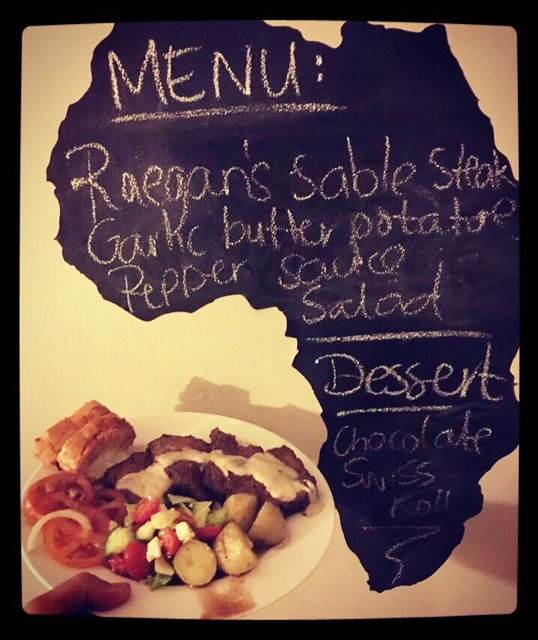 MENU:
Raegan's Sable Steak
Garlic butter potatoes
Pepper sauce
Salad
Dessert
Chocolate
Swiss
Roll